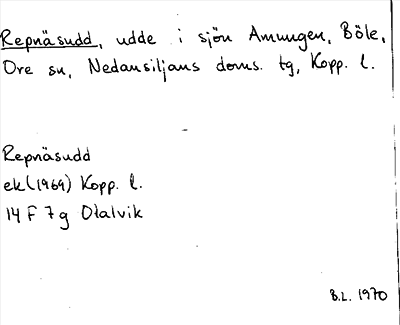 Repnäsudd, udde i sjön Amungen, Böle,
Ore sn, Nedansiljans doms. tg, Kopp. l.
Repnäsudd
ek (1969) Kopp. l.
14 F 7 g Otalvik
B.L. 1970